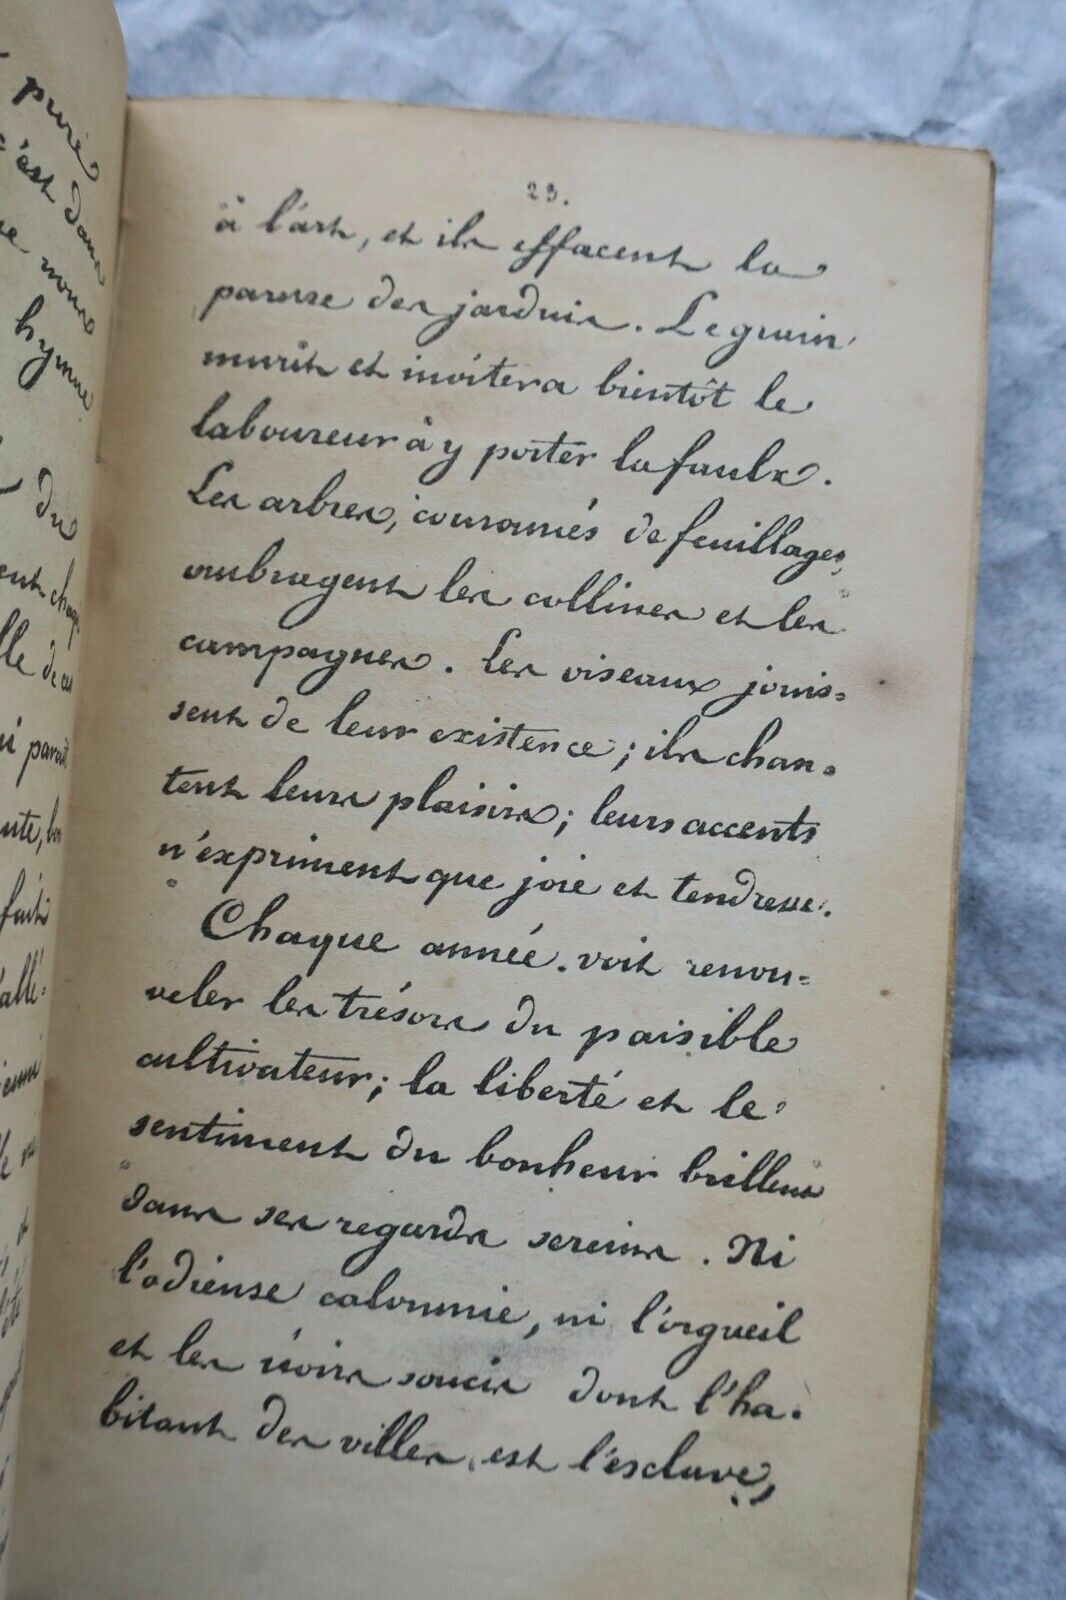 puré
c'est dans
nous
hymne
du
ent chaq
lle de ces
ui parait
ante, bon
fait
allé-
23.
à l'art, et ils effacent la
parure des jardins. Le grain
murit et invitera bientôt le
laboureur à y porter la faulx.
Les arbres, couronnés de feuillages,
ombragent les collines et les
campagnes. Les oiseaux jouis=
sent de leur existence; ils chan=
tent leurs plaisirs; leurs accents
n'expriment que joie et tendresse.
Chaque année voit renou=
veler les trésors du paisible
cultivateur; la liberté et le
sentiment du bonheur brillent
dans ses regards sereins. Ni
l'odieuse calomnie, ni l'orgueil
et les noirs soucis dont l'ha-
bitant des villes est l'esclave,